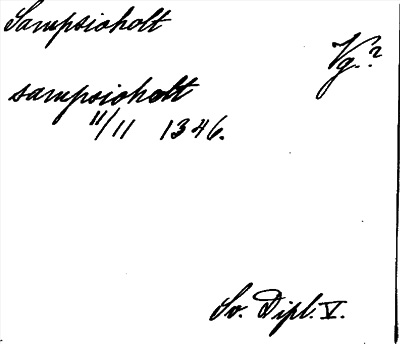 Sampsioholt
Vg.?
sampsioholt
11/11 1346.
Sv. Dipl. V.